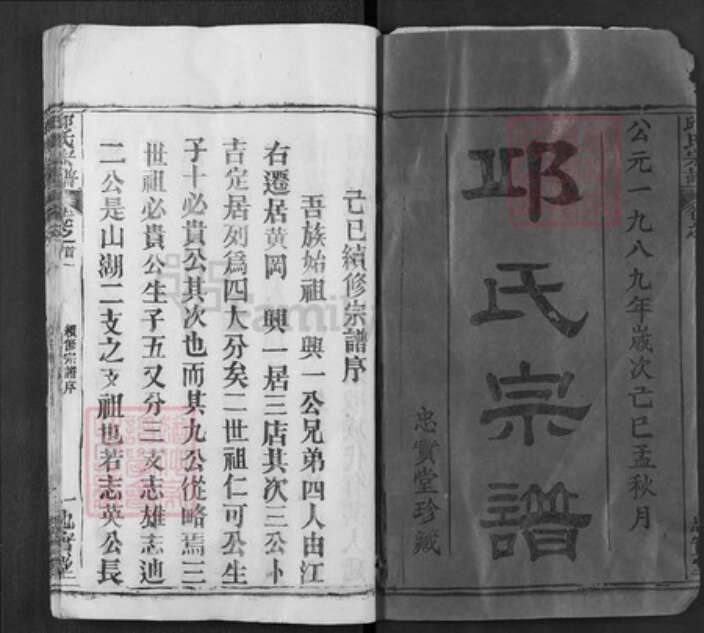 公元一九八九年歲次己巳孟秋月
邱氏宗譜
忠實堂珍藏
己巳續修宗譜序
吾族始祖　興一公兄弟四人由江
右遷居黃岡　興一居三店其次三公卜
吉定居列為四大分矣二世祖仁可公生
子十必貴公其次也而其九公從略焉三
世祖必貴公生子五又分三支志雄志迪
二公是山湖二支之支祖也若志英公長
邱氏宗譜
卷之首
續修宗譜序
一